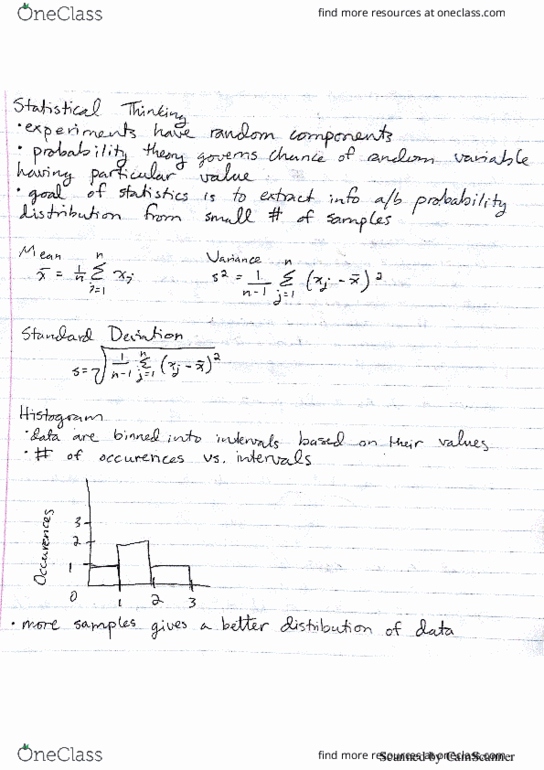 OneClass
find more resources at oneclass.com
Statistical Thinking
• experiments have random components
• probability theory governs chance of random variable
having particular value
• goal of statistics is to extract info a/b probability
distribution from small # of samples
Mean
x̄ = 1/n n∑j=1 xj
Variance
s² = 1/(n-1) n∑j=1 (xj - x̄)²
Standard Deviation
s = √(1/(n-1) n∑j=1 (xj - x̄)²)
Histogram
• data are binned into intervals based on their values
• # of occurences vs. intervals
Occurences
3
2
1
0 1 2 3
• more samples gives a better distribution of data
OneClass
find more resources at oneclass.com
Scanned by CamScanner